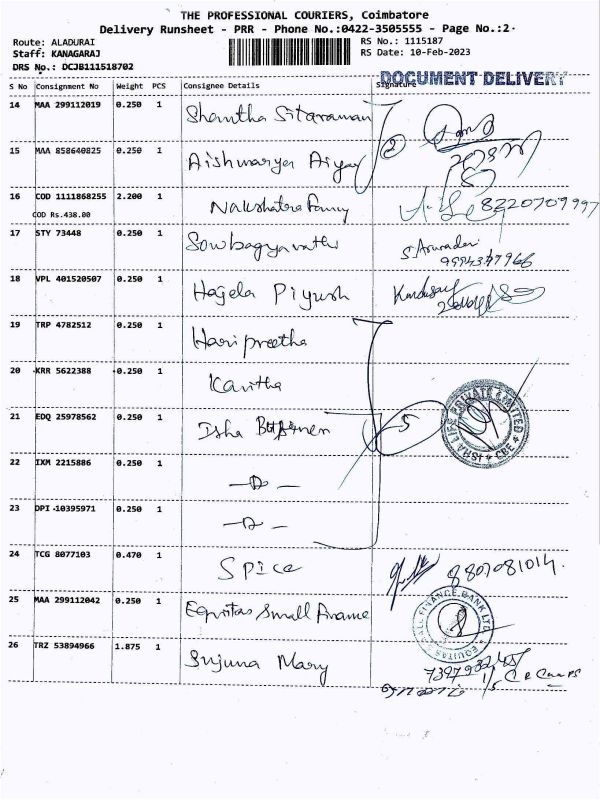 THE PROFESSIONAL COURIERS, Coimbatore
Delivery Runsheet - PRR - Phone No.:0422-3505555 - Page No.:2
Route: ALADURAI
Staff: KANAGARAJ
DRS No.: DCJB111518702
RS No.: 1115187
RS Date: 10-Feb-2023
DOCUMENT DELIVERY
S No Consignment No Weight PCS Consignee Details Signature
14 MAA 299112019 0.250 1 Shantha Sitaraman
2
15 MAA 858640825 0.250 1 Aishwarya Aiyar
16 COD 1111868255 2.200 1 Nakshatra Fancy 8220709997
COD Rs.438.00
17 STY 73448 0.250 1 Sowbagyavathi
18 VPL 401520507 0.250 1 Hajela Piyush
19 TRP 4782512 0.250 1 Haripreetha
20 KRR 5622388 0.250 1 Kavitha
21 EDQ 25978562 0.250 1 Isha 5
ISHA LIFE PRIVATE LIMITED
CBE
22 IXM 2215886 0.250 1
23 DPI 10395971 0.250 1
24 TCG 8077103 0.470 1 Spice 8807081014
25 MAA 299112042 0.250 1 Equitas Small Finance
EQUITAS SMALL FINANCE BANK LTD.
26 TRZ 53894966 1.875 1 Sujuna Mary